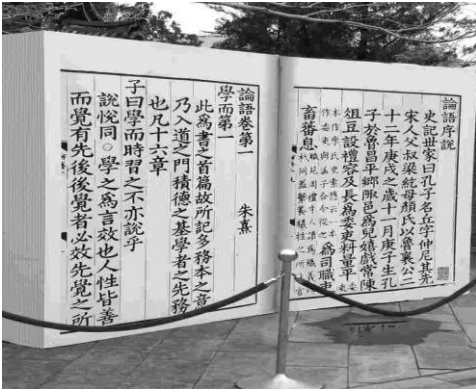 論語序說
史記世家曰孔子名丘字仲尼其先
宋人父叔梁紇母顏氏以魯襄公二
十二年庚戌之歲十一月庚子生孔
子於魯昌平鄉陬邑爲兒嬉戲常陳
俎豆設禮容及長爲委吏料量平
作委吏與孟子合今從之爲司職吏
畜蕃息
論語卷第一 朱熹
學而第一
此爲書之首篇故所記多務本之意
乃入道之門積德之基學者之先務
也凡十六章
子曰學而時習之不亦說乎
說悅同○學之爲言效也人性皆善
而覺有先後後覺者必效先覺之所